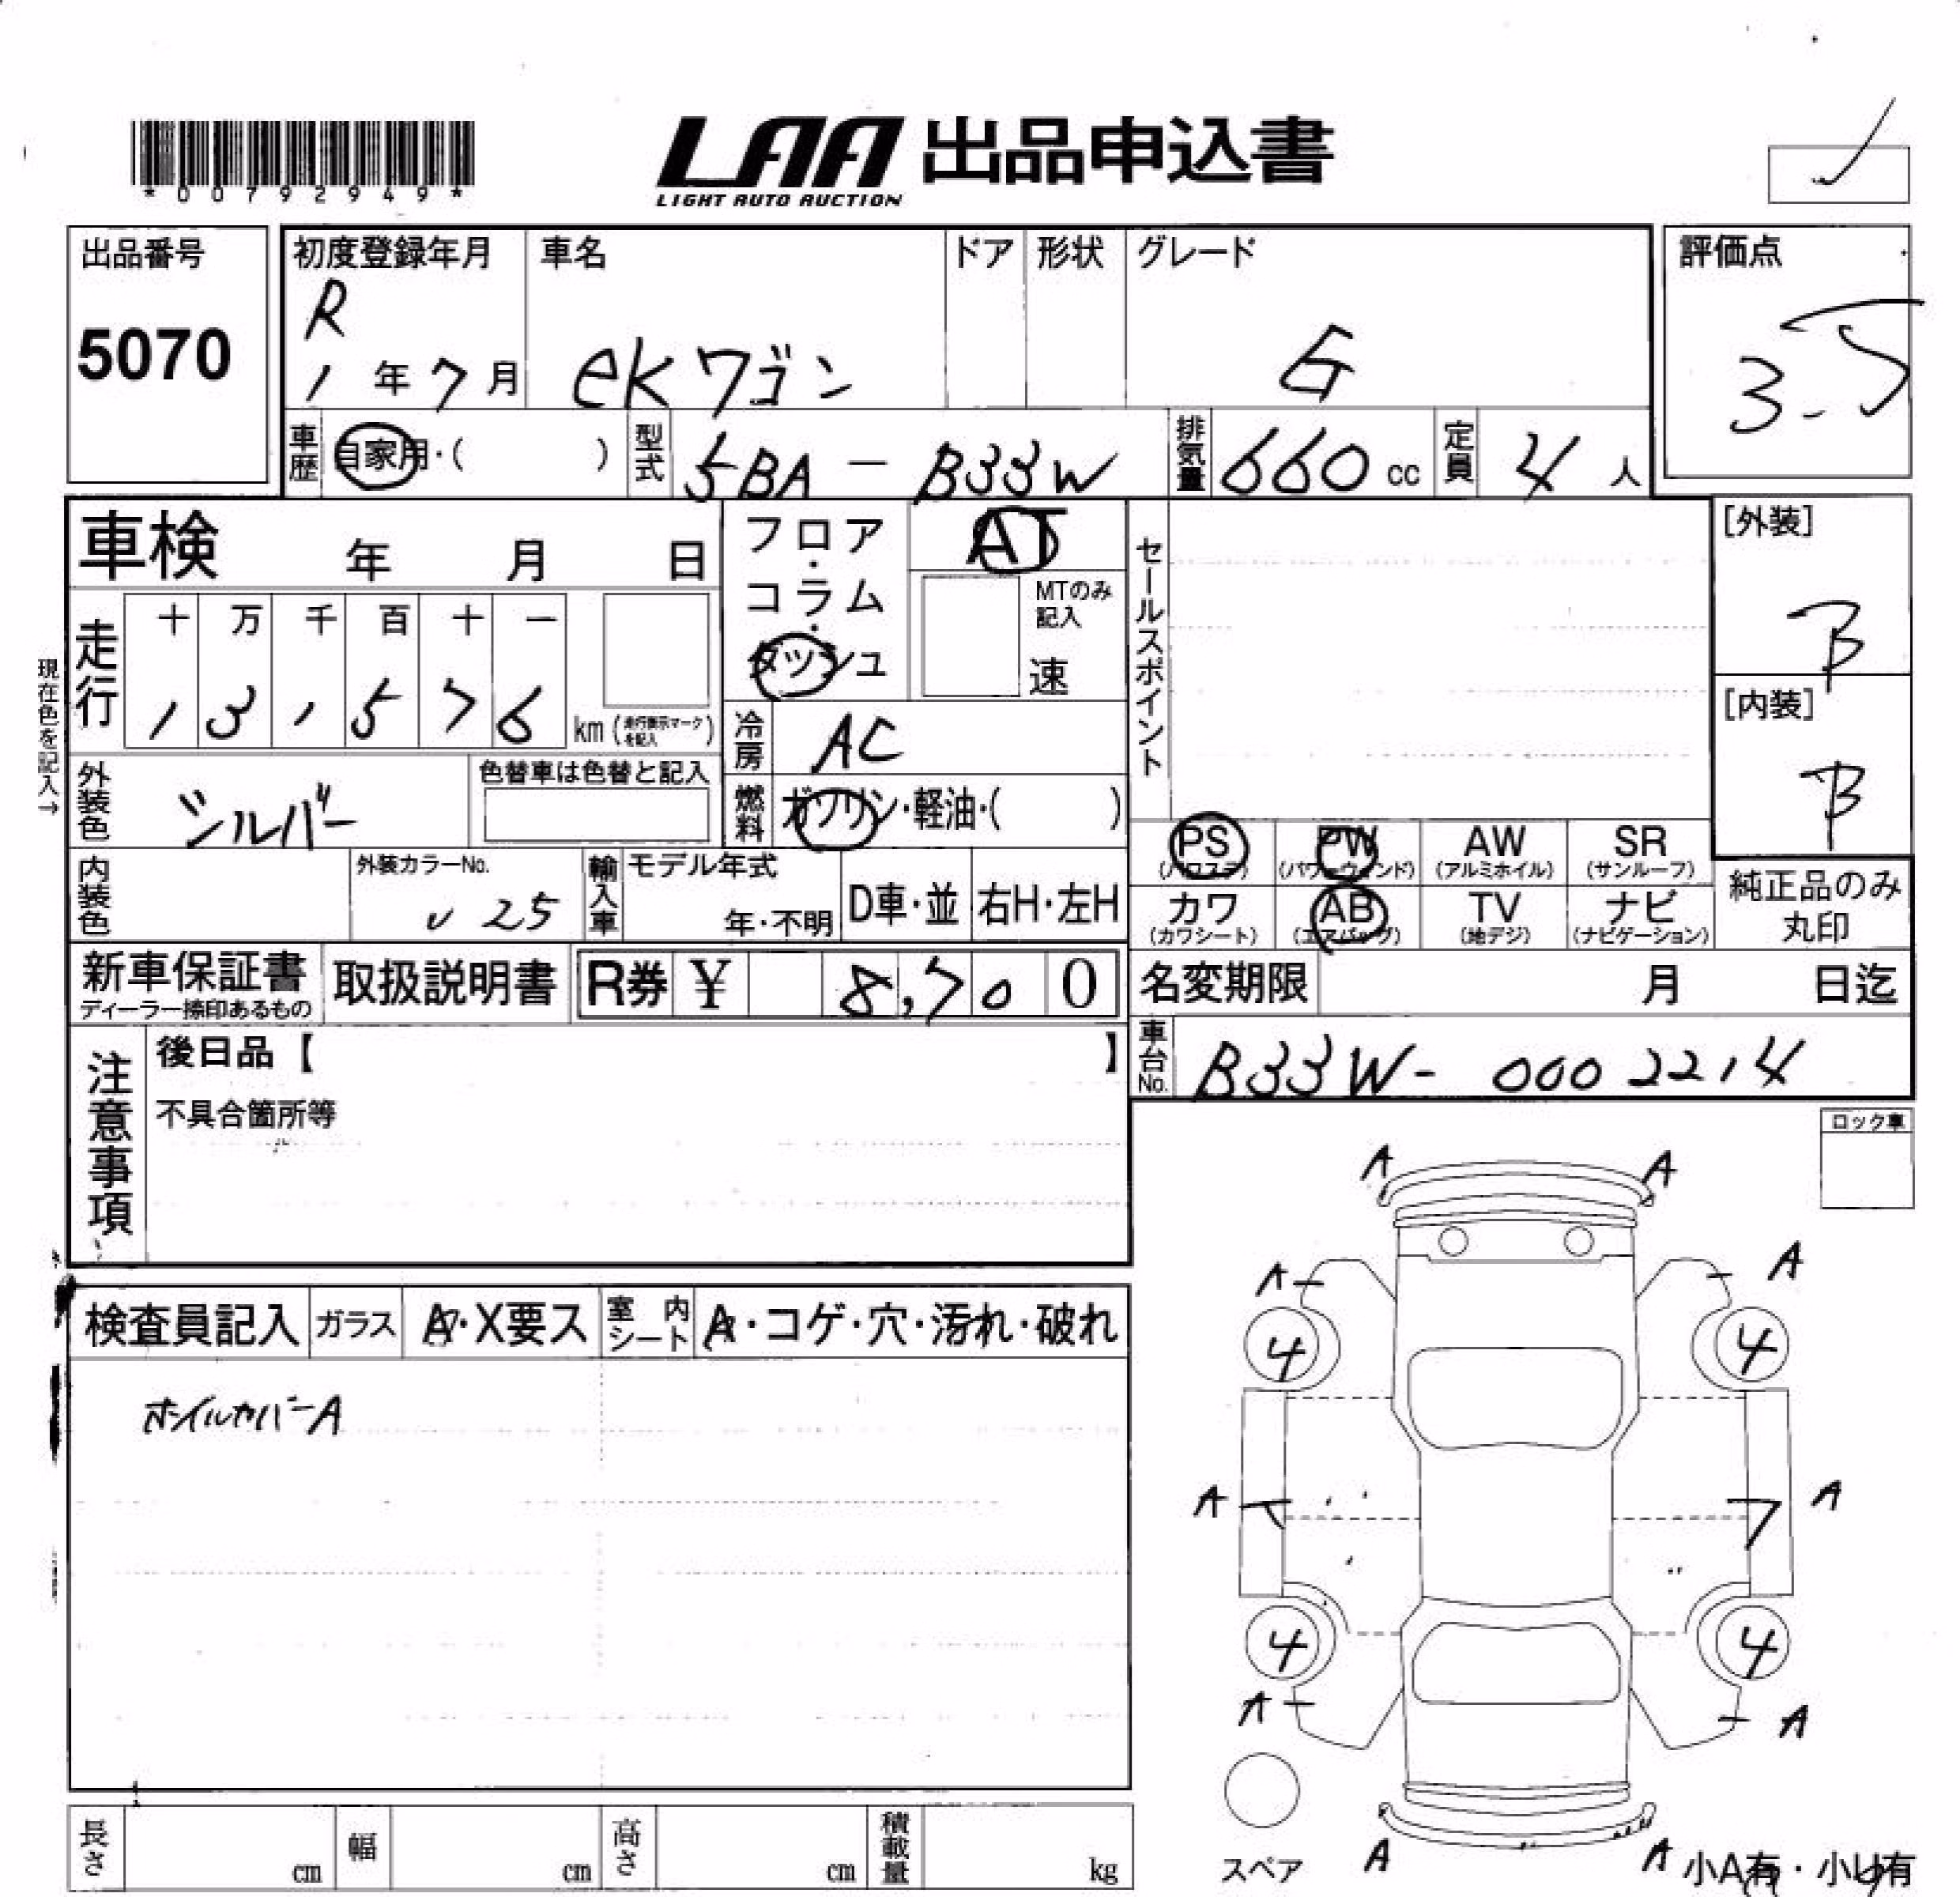 *00792949*
LAA 出品申込書
LIGHT AUTO AUCTION
出品番号
5070
初度登録年月
R
1年7月
車名
eKワゴン
ドア
形状
グレード
G
評価点
3.5
車歴
自家用・( )
型式
5BA - B33W
排気量
660cc
定員
4人
車検 年 月 日
フロア・コラム・ダッシュ
AT
MTのみ記入
速
セールスポイント
[外装]
B
[内装]
B
現在色を記入→
走行
十 万 千 百 十 一
1 3 , 5 7 6
km (走行表示マークを記入)
冷房
AC
外装色
シルバー
色替車は色替と記入
燃料
ガソリン・軽油・( )
内装色
外装カラーNo.
U25
輸入車
モデル年式
年・不明
D車・並
右H・左H
PS (パワステ)
PW (パワーウィンド)
AW (アルミホイル)
SR (サンルーフ)
カワ (カワシート)
AB (エアバッグ)
TV (地デジ)
ナビ (ナビゲーション)
純正品のみ丸印
新車保証書
ディーラー捺印あるもの
取扱説明書
R券 ¥ 8,700
名変期限 月 日迄
車台No.
B33W-0002214
注意事項
後日品【 】
不具合箇所等
ロック車
検査員記入
ガラス
A・X要ス
室内シート
A・コゲ・穴・汚れ・破れ
ホイルカバーA
A A
A A
4 4
A A
4 4
A A
スペア
A A
小A有・小U有
長さ cm
幅 cm
高さ cm
積載量 kg